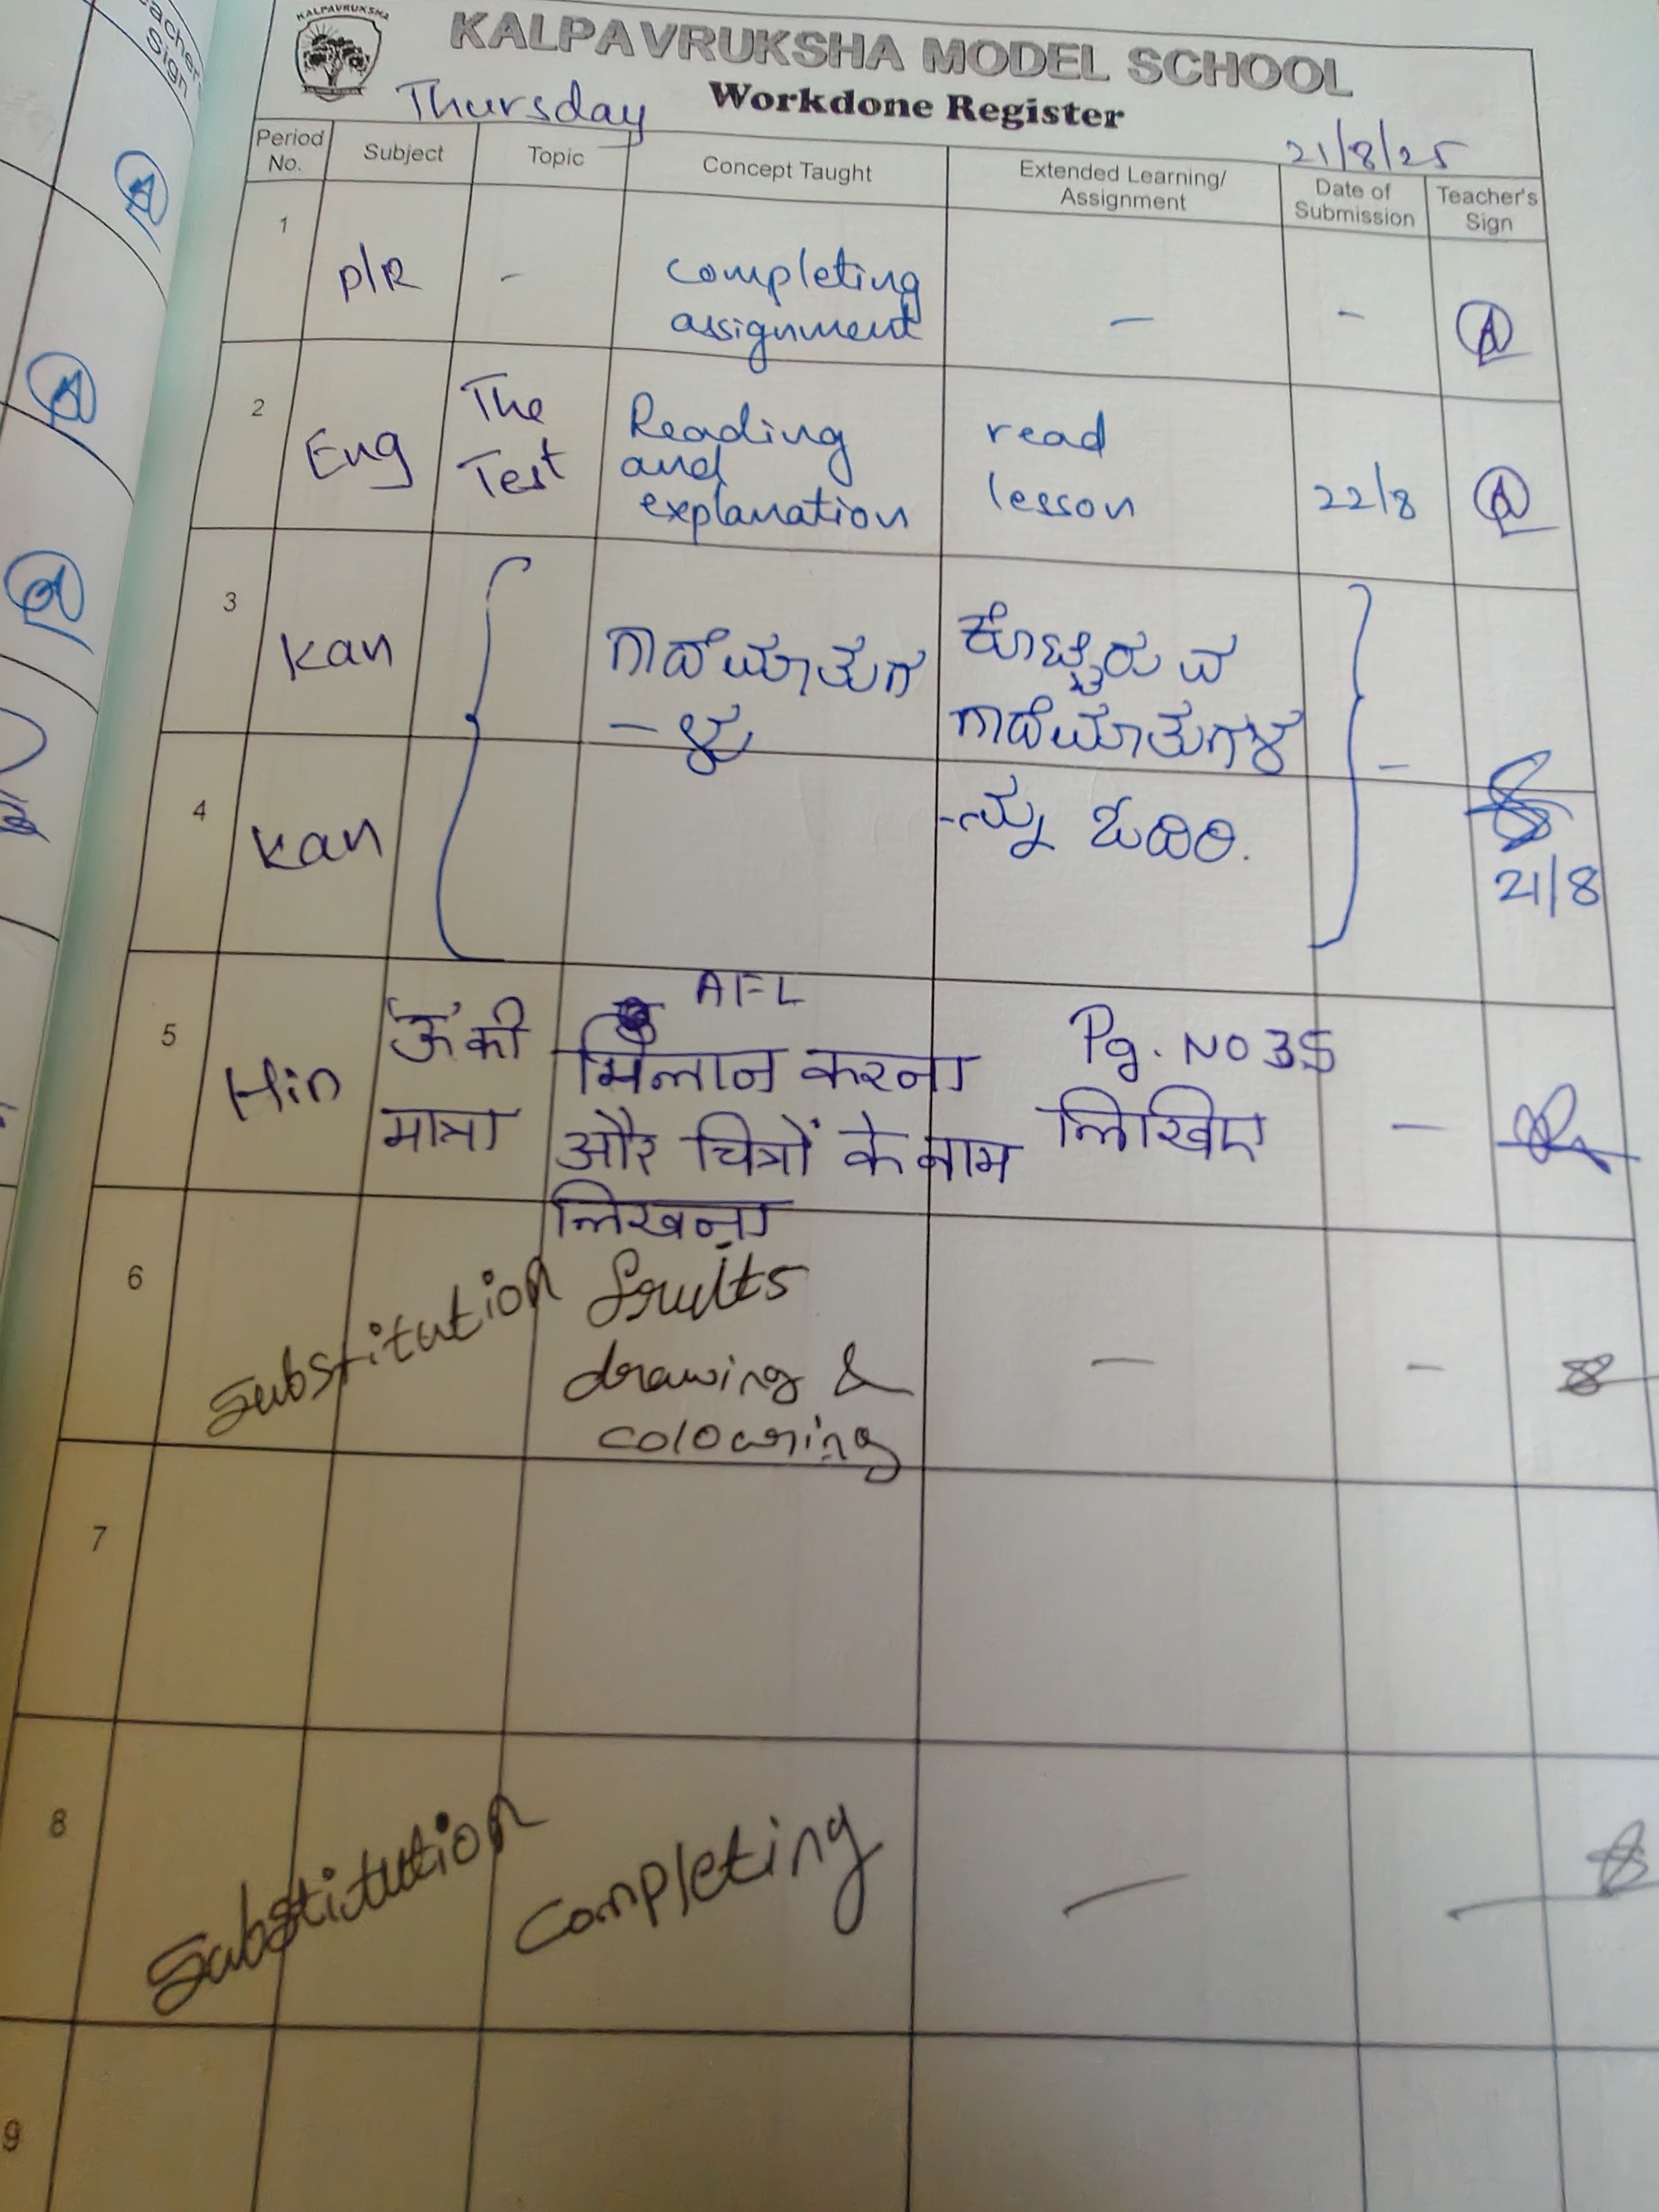 KALPAVRUKSHA
KALPAVRUKSHA MODEL SCHOOL
Thursday
Workdone Register
21/8/25
Period No.
Subject
Topic
Concept Taught
Extended Learning/
Assignment
Date of
Submission
Teacher's
Sign
1
P/R
-
completing
assignment
-
-
2
Eng
The
Test
Reading
and
explanation
read
lesson
22/8
3
Kan
ಗಾದೆಮಾತುಗ
-ಳು
ಕೊಟ್ಟಿರುವ
ಗಾದೆಮಾತುಗಳ
-ನ್ನು ಓದಿರಿ.
-
4
Kan
21/8
5
Hin
'ऊ' की
मात्रा
AFL
मिलान करना
और चित्रों के नाम
लिखना
Pg. No 35
लिखिए
-
6
Substitution
fruits
drawing &
colouring
-
-
7
8
Substitution
Completing
-
-
9